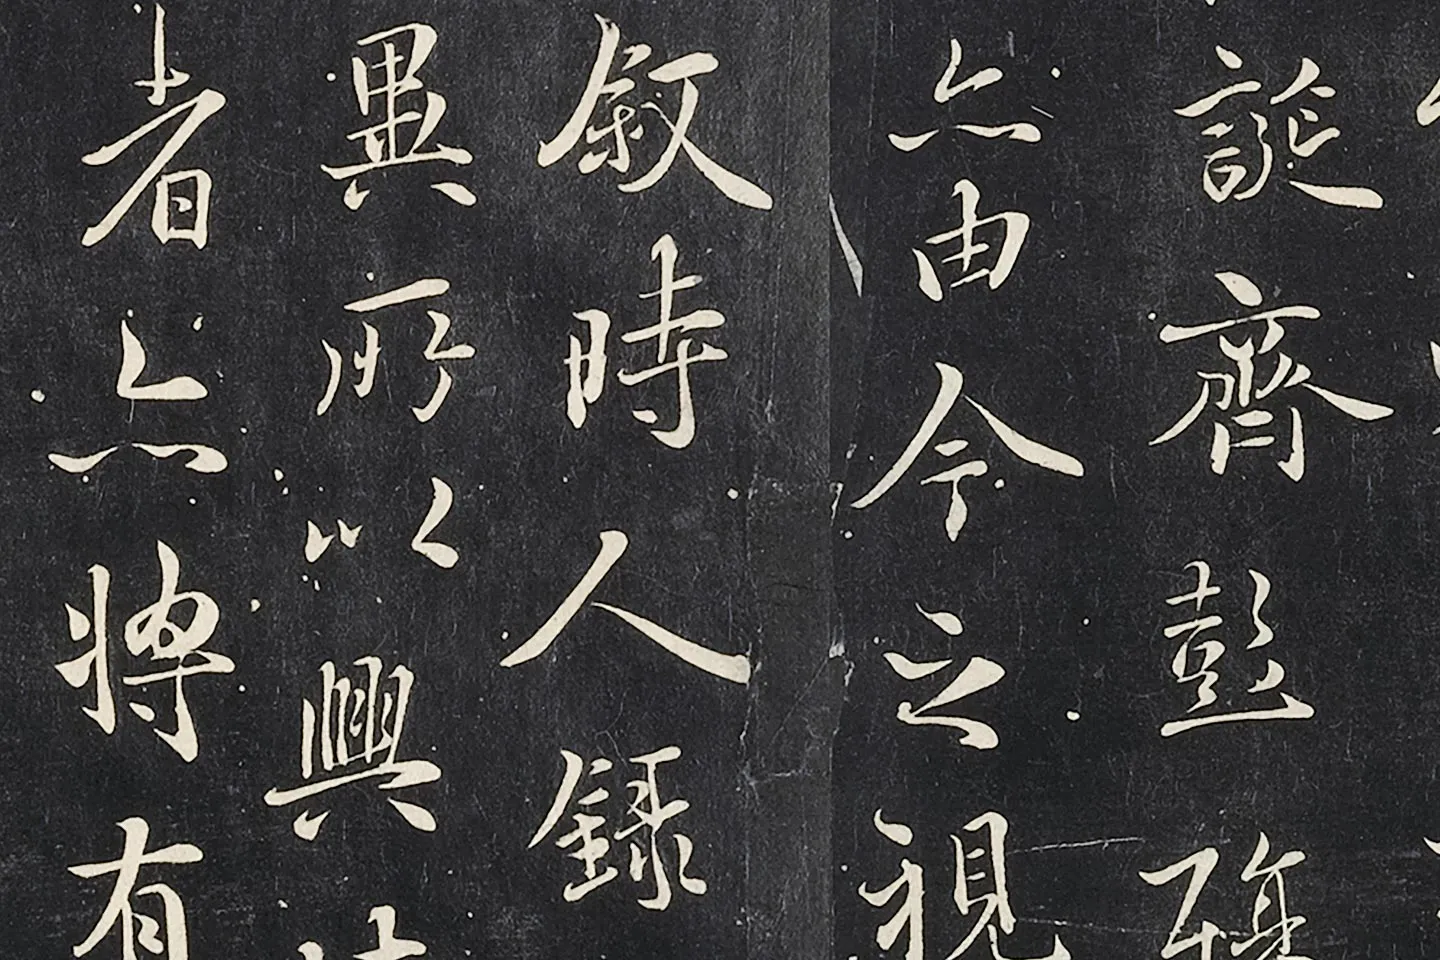 誕齊彭殤
亦由今之視
叙時人錄
異所以興
者亦將有